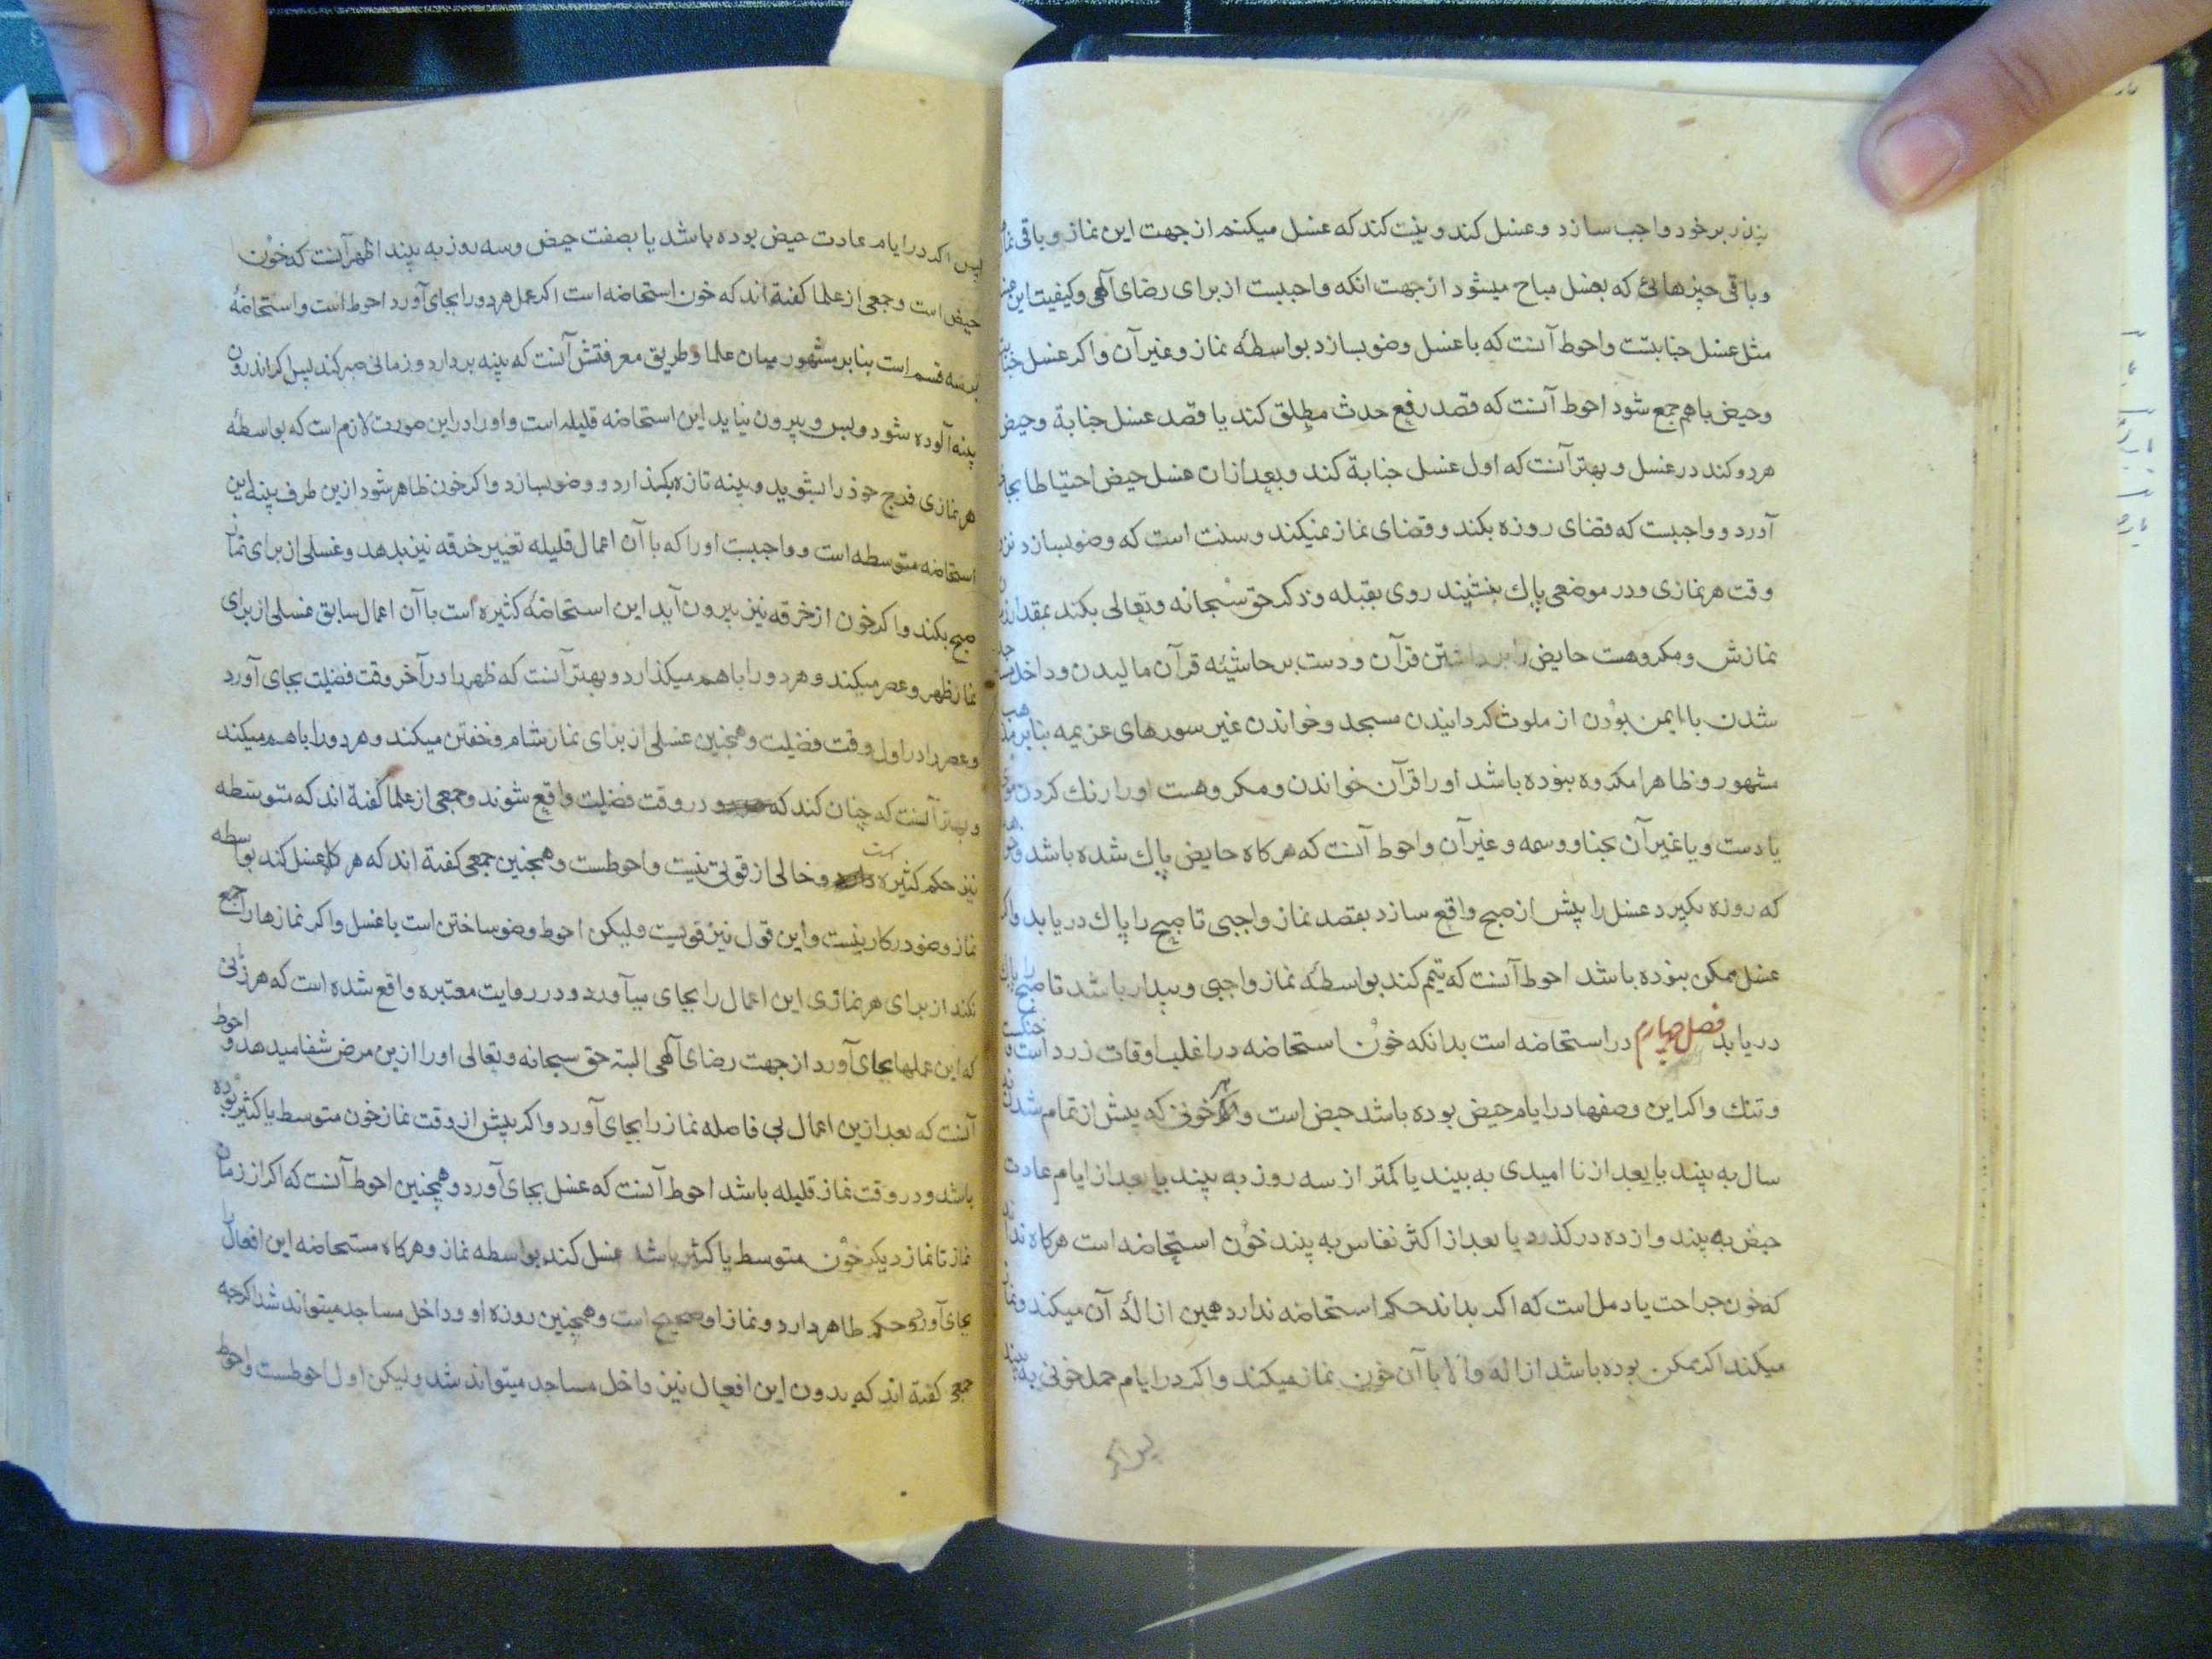 بنذر بر خود واجب سازد و غسل کند و نیت کند که غسل میکنم از جهت این نماز و باقی
و باقی چیزهائی که بغسل مباح میشود از جهت انکه واجبست از برای رضای آلهی و کیفیت این
مثل غسل جنابتست و احوط آنست که با غسل وضو بسازد بواسطهٔ نماز و غیر آن و اکر غسل
و حیض با هم جمع شود احوط آنست که قصد رفع حدث مطلق کند یا قصد غسل جنابة و حیض
هر دو کند در غسل و بهتر آنست که اول غسل جنابة کند و بعد از ان غسل حیض احتیاطا
آورد و واجبست که قضای روزه بکند و قضای نماز نمیکند و سنت است که وضو بسازد نزد
وقت هر نمازی و در موضعی پاك بنشیند روی بقبله و ذکر حق سبحانه و تعالی بکند بمقدار
نمازش و مکروهست حایض را برداشتن قرآن و دست بر حاشیه قرآن مالیدن و داخل
شدن با ایمن بودن از ملوث کردانیدن مسجد و خواندن غیر سورهای عزیمه بنابر
مشهور و ظاهرا مکروه نبوده باشد او را قرآن خواندن و مکروهست او را رنك کردن
یا دست و یا غیر آن بحنا و وسمه و غیر آن و احوط آنست که هر کاه حایض پاك شده باشد
که روزه بکیرد غسل را پیش از صبح واقع سازد بقصد نماز واجبی تا صبح را پاك دریابد و اکر
غسل ممکن نبوده باشد احوط آنست که تیمم کند بواسطهٔ نماز واجبی و بیدار باشد تا صبح را پاك
دریابد فصل چهارم در استحاضه است بدانکه خون استحاضه در اغلب اوقات زرد است
و تنك و اکر این وصفها در ایام حیض بوده باشد حیض است و هر خونی که پیش از تمام شدن
سال به بیند یا بعد از نا امیدی به بیند یا کمتر از سه روز به بیند یا بعد از ایام عادت
حیض به بیند و از ده در کذرد یا بعد از اکثر نفاس به بیند خون استحاضه است هر کاه نداند
که خون جراحت یا دمل است که اکر بداند حکم استحاضه ندارد همین ازالهٔ آن میکند و نماز
میکند اکر ممکن بوده باشد ازاله و الا با آن خون نماز میکند و اکر در ایام حمل خونی به بیند
پس اکر
پس اکر در ایام عادت حیض بوده باشد یا بصفت حیض و سه روز به بیند اظهر آنست که خون
حیض است و جمعی از علما کفته اند که خون استحاضه است اکر عمل هر دو را بجای آورد احوط است و استحاضهٔ
بر سه قسم است بنابر مشهور میان علما و طریق معرفتش آنست که پنبه بردارد و زمانی صبر کند پس اکر اندرون
پنبه آلوده شود و بس و بیرون نیاید این استحاضه قلیله است و او را در این صورت لازم است که بواسطهٔ
هر نمازی فرج خود را بشوید و پنبه تازه بکذارد و وضو بسازد و اکر خون ظاهر شود ازین طرف پنبه این
استحاضه متوسطه است و واجبست او را که با آن اعمال قلیله تغییر خرقه نیز بدهد و غسلی از برای نماز
صبح بکند و اکر خون از خرقه نیز بیرون آید این استحاضهٔ کثیره است با آن اعمال سابق غسلی از برای
نماز ظهر و عصر میکند و هر دو را با هم میکذارد و بهتر آنست که ظهر را در آخر وقت فضیلت بجای آورد
و عصر را در اول وقت فضیلت و همچنین غسلی از برای نماز شام و خفتن میکند و هر دو را با هم میکند
و بهتر آنست که چنان کند که در وقت فضیلت واقع شوند و جمعی از علما کفته اند که متوسطه
نیز حکم کثیره و خالی از قوتی نیست و احوطست و همچنین جمعی کفته اند که هر کاه غسل کند بواسطه
نماز وضو در کار نیست و این قول نیز قویست و لیکن احوط وضو ساختن است با غسل و اکر نمازها را جمع
نکند از برای هر نمازی این اعمال را بجای میآورد و در روایت معتبره واقع شده است که هر زنی
که این عملها بجای آورد از جهت رضای آلهی البته حق سبحانه و تعالی او را ازین مرض شفا میدهد و احوط
آنست که بعد ازین اعمال بی فاصله نماز را بجای آورد و اکر پیش از وقت نماز خون متوسط یا کثیر بوده
باشد و در وقت نماز قلیله باشد احوط آنست که غسل بجای آورد و همچنین احوط آنست که اکر از زمان
نماز تا نماز دیکر خون متوسط یا کثیر باشد غسل کند بواسطه نماز و هر کاه مستحاضه این افعال را
بجای آورد حکم طاهر دارد و نماز او صحیح است و همچنین روزه او و داخل مساجد میتواند شد اکرچه
جمعی کفته اند که بدون این افعال نیز داخل مساجد میتواند شد و لیکن اول احوطست و احوط